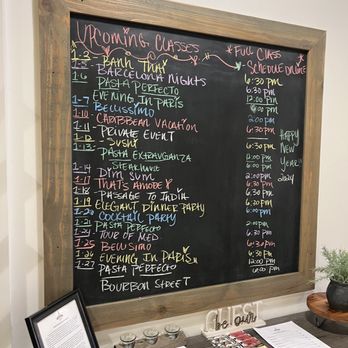 Upcoming Classes
*Full Class
Schedule online
1-2 - Banh Thai 6:30 pm
1-5 - Barcelona Nights 6:30 pm
1-6 Pasta Perfecto 12:00 pm
Evening in Paris 6:00 pm
1-7 Bellissimo 2:00 pm
1-10 - Caribbean Vacation 6:30 pm
1-11 - Private Event
1-12 - Sushi 6:30 pm
1-13 - Pasta Extravganza 12:00 pm
Steakhouse 6:00 pm
1-14 Dim Sum 2:00 pm
1-17 That's Amore! 6:30 pm
1-18 - Passage to India 6:30 pm
1-19 Elegant Dinner Party 6:30 pm
1-20 Cocktail Party 6:00 pm
1-21 Pasta Perfecto 2:00 pm
1-24 Tour of Med 6:30 pm
1-25 Bellisimo 6:30 pm
1-26 Evening in Paris 6:30 pm
1-27 Pasta Perfecto 12:00 pm
Bourbon Street 6:00 pm
Happy
New
Year!!
2024
be our
GUEST